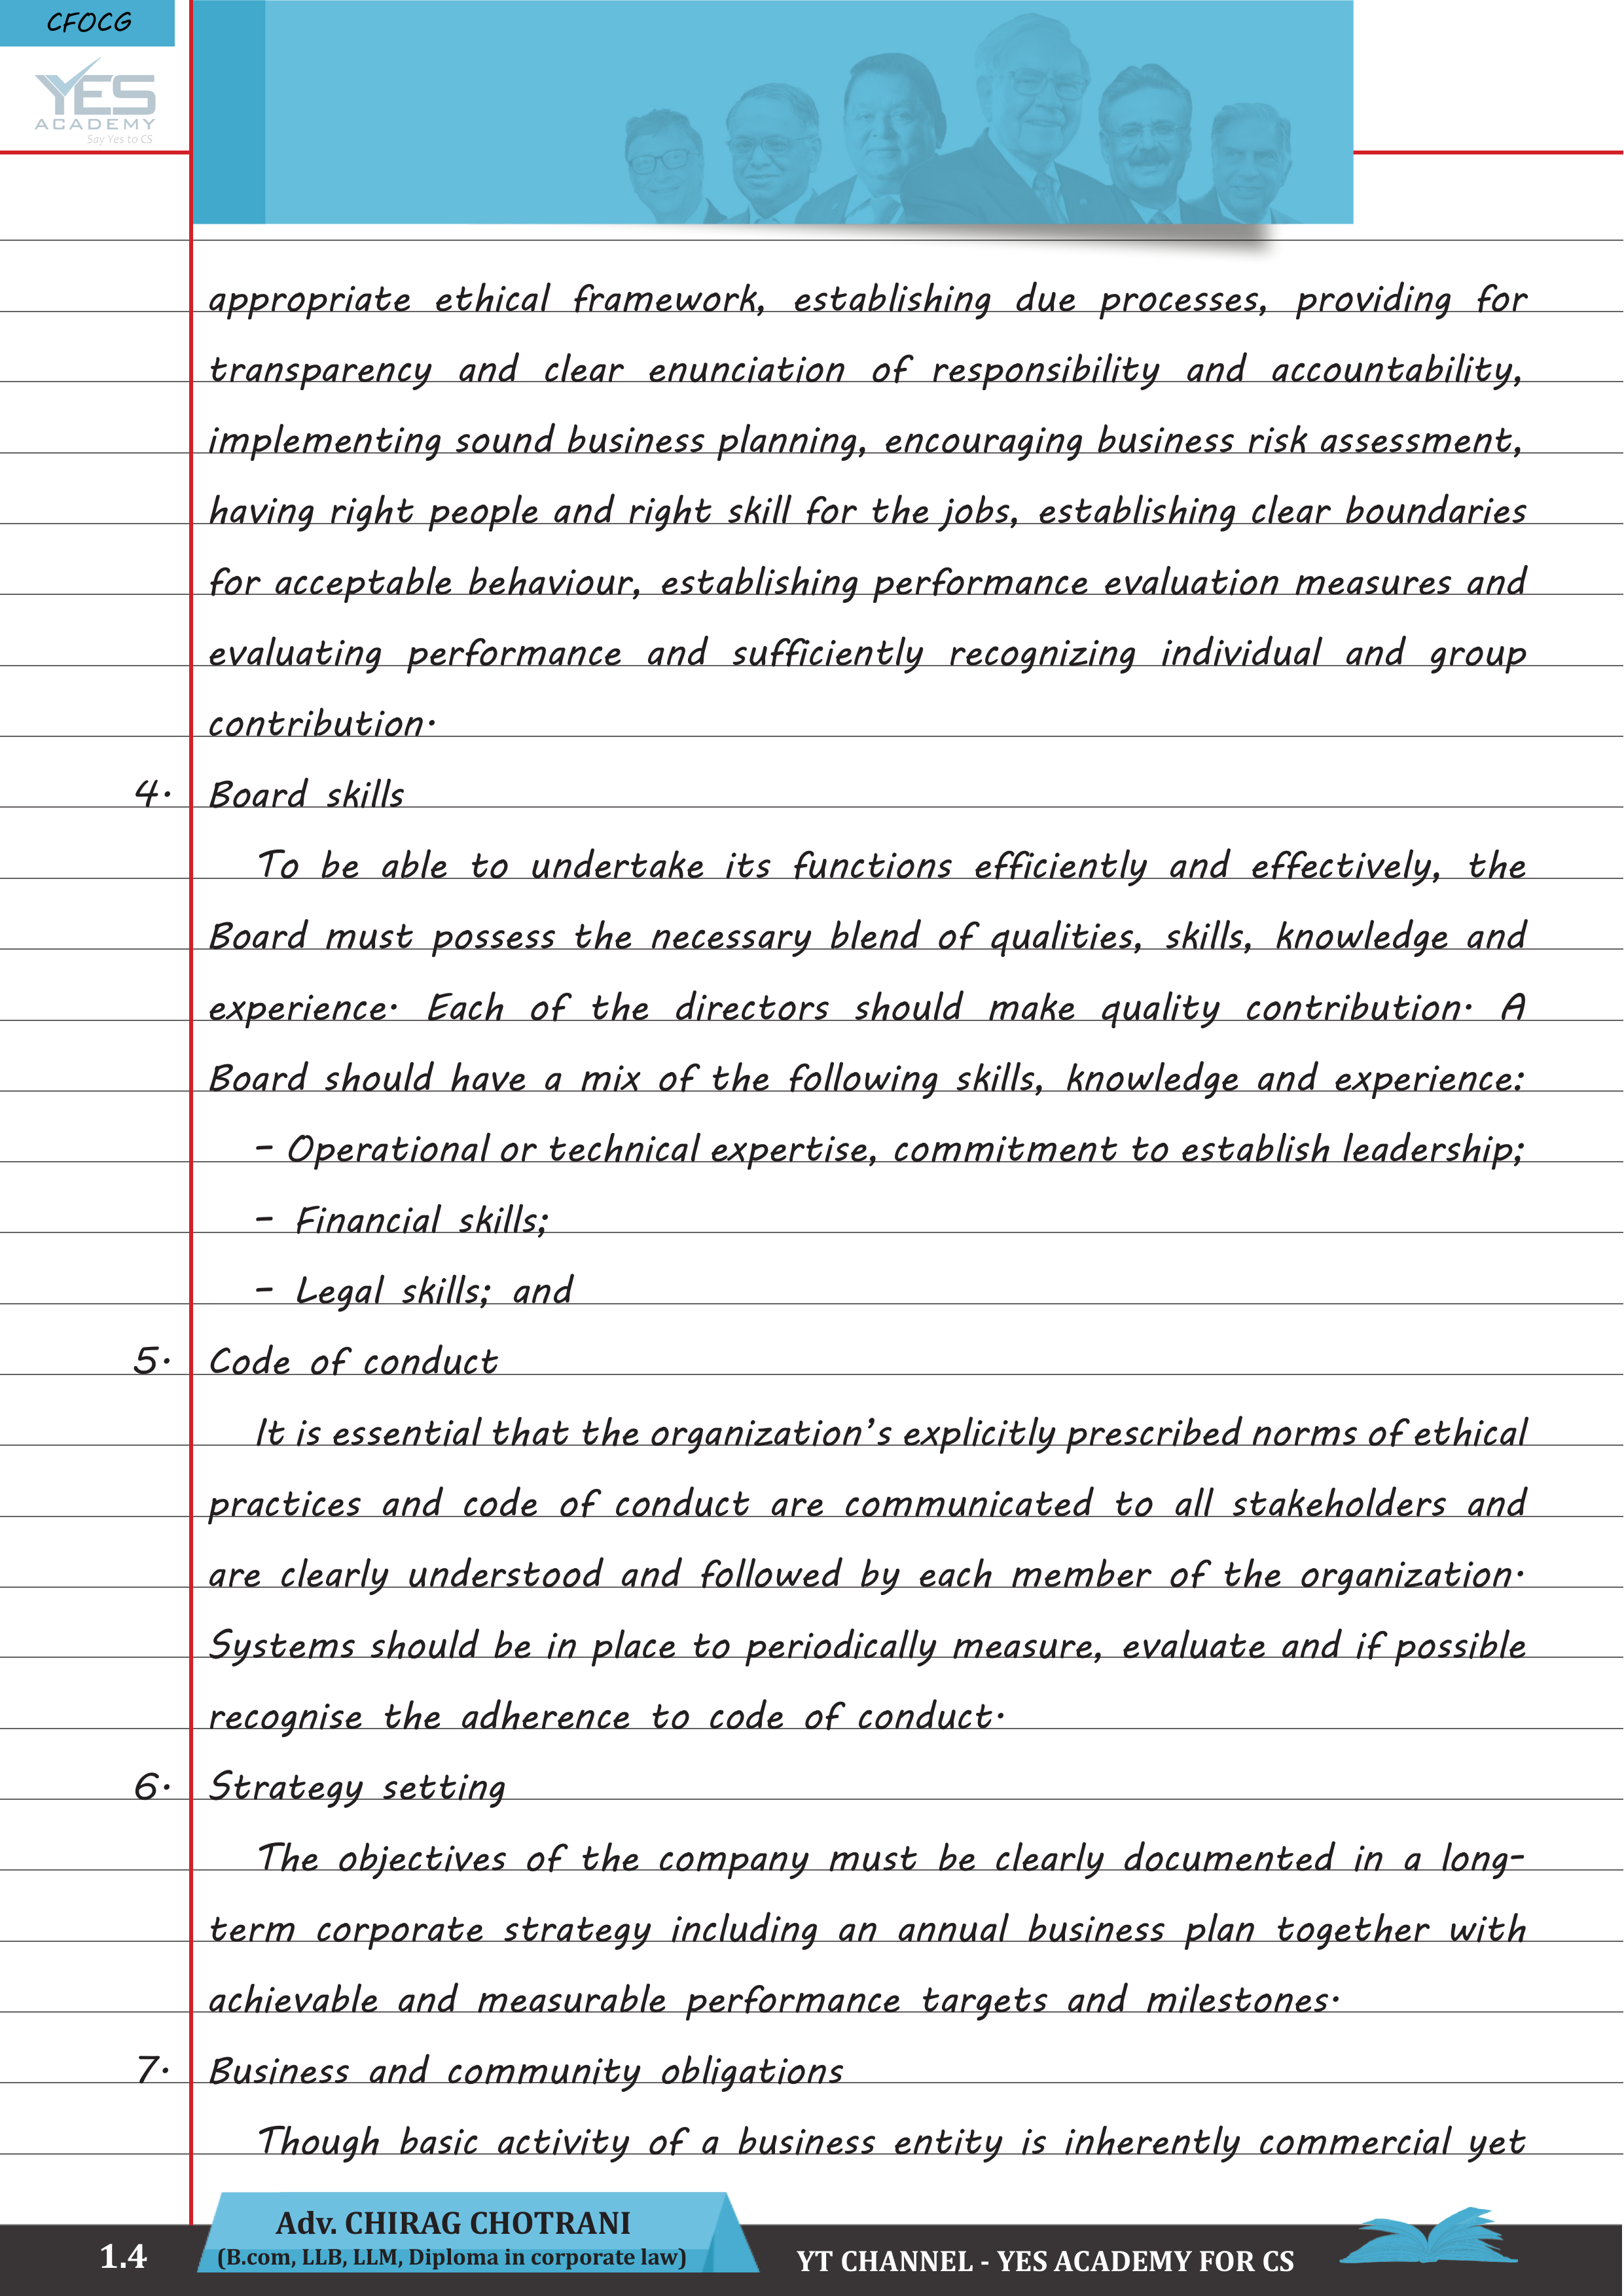 CFOCG
YES
ACADEMY
Say Yes to CS
appropriate ethical framework, establishing due processes, providing for
transparency and clear enunciation of responsibility and accountability,
implementing sound business planning, encouraging business risk assessment,
having right people and right skill for the jobs, establishing clear boundaries
for acceptable behaviour, establishing performance evaluation measures and
evaluating performance and sufficiently recognizing individual and group
contribution.
4. Board skills
To be able to undertake its functions efficiently and effectively, the
Board must possess the necessary blend of qualities, skills, knowledge and
experience. Each of the directors should make quality contribution. A
Board should have a mix of the following skills, knowledge and experience:
– Operational or technical expertise, commitment to establish leadership;
– Financial skills;
– Legal skills; and
5. Code of conduct
It is essential that the organization's explicitly prescribed norms of ethical
practices and code of conduct are communicated to all stakeholders and
are clearly understood and followed by each member of the organization.
Systems should be in place to periodically measure, evaluate and if possible
recognise the adherence to code of conduct.
6. Strategy setting
The objectives of the company must be clearly documented in a long-
term corporate strategy including an annual business plan together with
achievable and measurable performance targets and milestones.
7. Business and community obligations
Though basic activity of a business entity is inherently commercial yet
1.4
Adv. CHIRAG CHOTRANI
(B.com, LLB, LLM, Diploma in corporate law)
YT CHANNEL - YES ACADEMY FOR CS